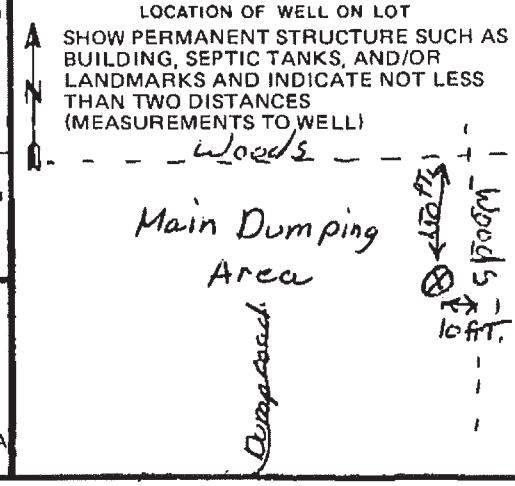 LOCATION OF WELL ON LOT
SHOW PERMANENT STRUCTURE SUCH AS
BUILDING, SEPTIC TANKS, AND/OR
LANDMARKS AND INDICATE NOT LESS
THAN TWO DISTANCES
(MEASUREMENTS TO WELL)
N
Woods
Main Dumping
Area
FT
Woods
10 FT.
Dump road